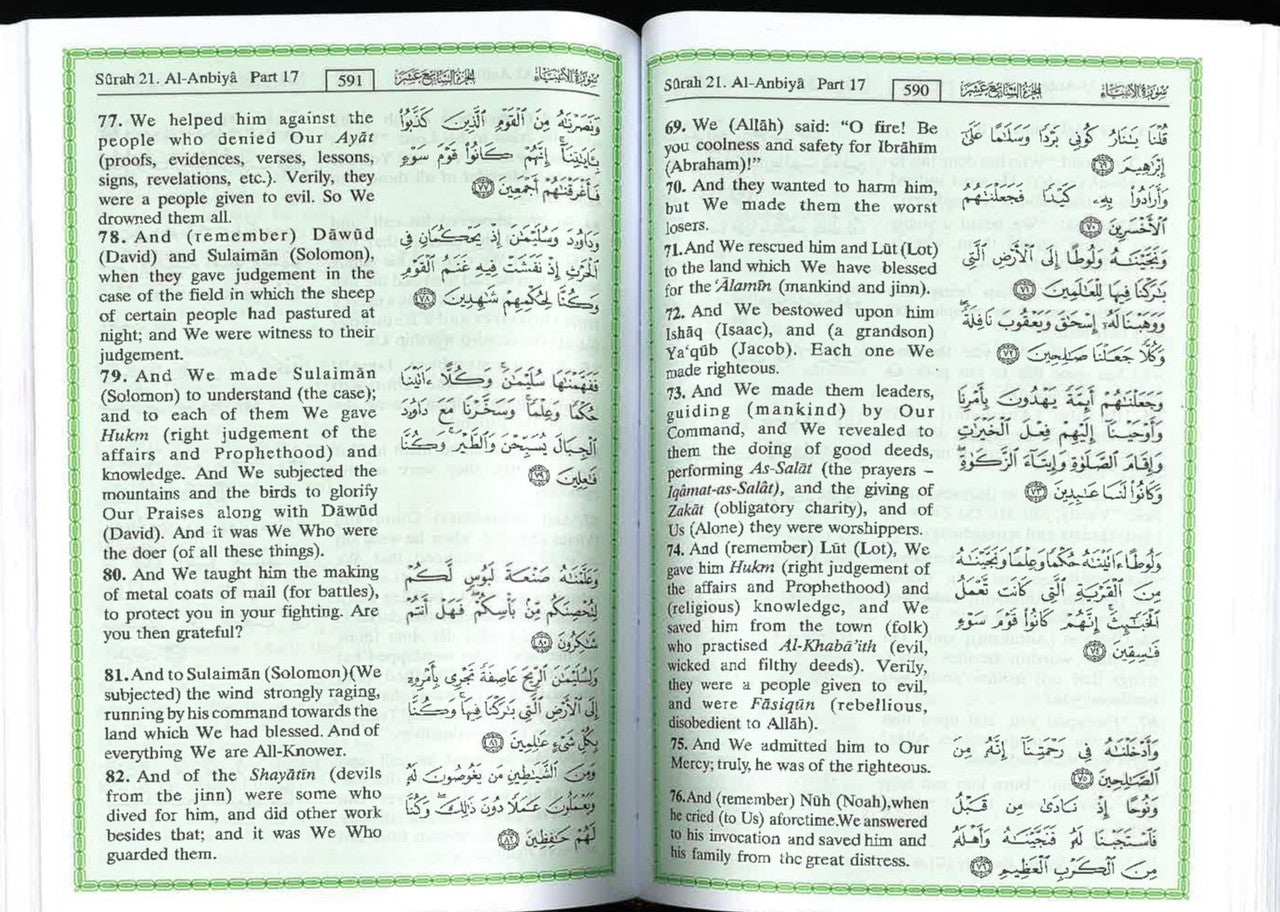 Sûrah 21. Al-Anbiyâ Part 17 590 الجزء السابع عشر سورة الأنبياء
69. We (Allāh) said: “O fire! Be
you coolness and safety for Ibrāhīm
(Abraham)!”
70. And they wanted to harm him,
but We made them the worst
losers.
71.And We rescued him and Lūt (Lot)
to the land which We have blessed
for the ‘Ālamīn (mankind and jinn).
72. And We bestowed upon him
Ishāq (Isaac), and (a grandson)
Ya‘qūb (Jacob). Each one We
made righteous.
73. And We made them leaders,
guiding (mankind) by Our
Command, and We revealed to
them the doing of good deeds,
performing As-Salāt (the prayers –
Iqâmat-as-Salât), and the giving of
Zakāt (obligatory charity), and of
Us (Alone) they were worshippers.
74. And (remember) Lūt (Lot), We
gave him Hukm (right judgement of
the affairs and Prophethood) and
(religious) knowledge, and We
saved him from the town (folk)
who practised Al-Khabā’ith (evil,
wicked and filthy deeds). Verily,
they were a people given to evil,
and were Fāsiqūn (rebellious,
disobedient to Allāh).
75. And We admitted him to Our
Mercy; truly, he was of the righteous.
76.And (remember) Nūh (Noah),when
he cried (to Us) aforetime.We answered
to his invocation and saved him and
his family from the great distress.
قُلْنَا يَٰنَارُ كُونِى بَرْدًا وَسَلَٰمًا عَلَىٰٓ
إِبْرَٰهِيمَ ٦٩
وَأَرَادُوا۟ بِهِۦ كَيْدًا فَجَعَلْنَٰهُمُ
ٱلْأَخْسَرِينَ ٧٠
وَنَجَّيْنَٰهُ وَلُوطًا إِلَى ٱلْأَرْضِ ٱلَّتِى
بَٰرَكْنَا فِيهَا لِلْعَٰلَمِينَ ٧١
وَوَهَبْنَا لَهُۥٓ إِسْحَٰقَ وَيَعْقُوبَ نَافِلَةً ۖ
وَكُلًّا جَعَلْنَا صَٰلِحِينَ ٧٢
وَجَعَلْنَٰهُمْ أَئِمَّةً يَهْدُونَ بِأَمْرِنَا
وَأَوْحَيْنَآ إِلَيْهِمْ فِعْلَ ٱلْخَيْرَٰتِ
وَإِقَامَ ٱلصَّلَوٰةِ وَإِيتَآءَ ٱلزَّكَوٰةِ ۖ
وَكَانُوا۟ لَنَا عَٰبِدِينَ ٧٣
وَلُوطًا ءَاتَيْنَٰهُ حُكْمًا وَعِلْمًا وَنَجَّيْنَٰهُ
مِنَ ٱلْقَرْيَةِ ٱلَّتِى كَانَت تَّعْمَلُ
ٱلْخَبَٰٓئِثَ ۗ إِنَّهُمْ كَانُوا۟ قَوْمَ سَوْءٍ
فَٰسِقِينَ ٧٤
وَأَدْخَلْنَٰهُ فِى رَحْمَتِنَآ ۖ إِنَّهُۥ مِنَ
ٱلصَّٰلِحِينَ ٧٥
وَنُوحًا إِذْ نَادَىٰ مِن قَبْلُ
فَٱسْتَجَبْنَا لَهُۥ فَنَجَّيْنَٰهُ وَأَهْلَهُۥ
مِنَ ٱلْكَرْبِ ٱلْعَظِيمِ ٧٦
Sûrah 21. Al-Anbiyâ Part 17 591 الجزء السابع عشر سورة الأنبياء
77. We helped him against the
people who denied Our Ayāt
(proofs, evidences, verses, lessons,
signs, revelations, etc.). Verily, they
were a people given to evil. So We
drowned them all.
78. And (remember) Dāwūd
(David) and Sulaimān (Solomon),
when they gave judgement in the
case of the field in which the sheep
of certain people had pastured at
night; and We were witness to their
judgement.
79. And We made Sulaimān
(Solomon) to understand (the case);
and to each of them We gave
Hukm (right judgement of the
affairs and Prophethood) and
knowledge. And We subjected the
mountains and the birds to glorify
Our Praises along with Dāwūd
(David). And it was We Who were
the doer (of all these things).
80. And We taught him the making
of metal coats of mail (for battles),
to protect you in your fighting. Are
you then grateful?
81. And to Sulaimān (Solomon)(We
subjected) the wind strongly raging,
running by his command towards the
land which We had blessed. And of
everything We are All-Knower.
82. And of the Shayātīn (devils
from the jinn) were some who
dived for him, and did other work
besides that; and it was We Who
guarded them.
وَنَصَرْنَٰهُ مِنَ ٱلْقَوْمِ ٱلَّذِينَ كَذَّبُوا۟
بِـَٔايَٰتِنَآ ۚ إِنَّهُمْ كَانُوا۟ قَوْمَ سَوْءٍ
فَأَغْرَقْنَٰهُمْ أَجْمَعِينَ ٧٧
وَدَاوُۥدَ وَسُلَيْمَٰنَ إِذْ يَحْكُمَانِ فِى
ٱلْحَرْثِ إِذْ نَفَشَتْ فِيهِ غَنَمُ ٱلْقَوْمِ
وَكُنَّا لِحُكْمِهِمْ شَٰهِدِينَ ٧٨
فَفَهَّمْنَٰهَا سُلَيْمَٰنَ ۚ وَكُلًّا ءَاتَيْنَا
حُكْمًا وَعِلْمًا ۚ وَسَخَّرْنَا مَعَ دَاوُۥدَ
ٱلْجِبَالَ يُسَبِّحْنَ وَٱلطَّيْرَ ۚ وَكُنَّا
فَٰعِلِينَ ٧٩
وَعَلَّمْنَٰهُ صَنْعَةَ لَبُوسٍ لَّكُمْ
لِتُحْصِنَكُم مِّنۢ بَأْسِكُمْ ۖ فَهَلْ أَنتُمْ
شَٰكِرُونَ ٨٠
وَلِسُلَيْمَٰنَ ٱلرِّيحَ عَاصِفَةً تَجْرِى بِأَمْرِهِۦٓ
إِلَى ٱلْأَرْضِ ٱلَّتِى بَٰرَكْنَا فِيهَا ۚ وَكُنَّا
بِكُلِّ شَىْءٍ عَٰلِمِينَ ٨١
وَمِنَ ٱلشَّيَٰطِينِ مَن يَغُوصُونَ لَهُۥ
وَيَعْمَلُونَ عَمَلًا دُونَ ذَٰلِكَ ۖ وَكُنَّا
لَهُمْ حَٰفِظِينَ ٨٢